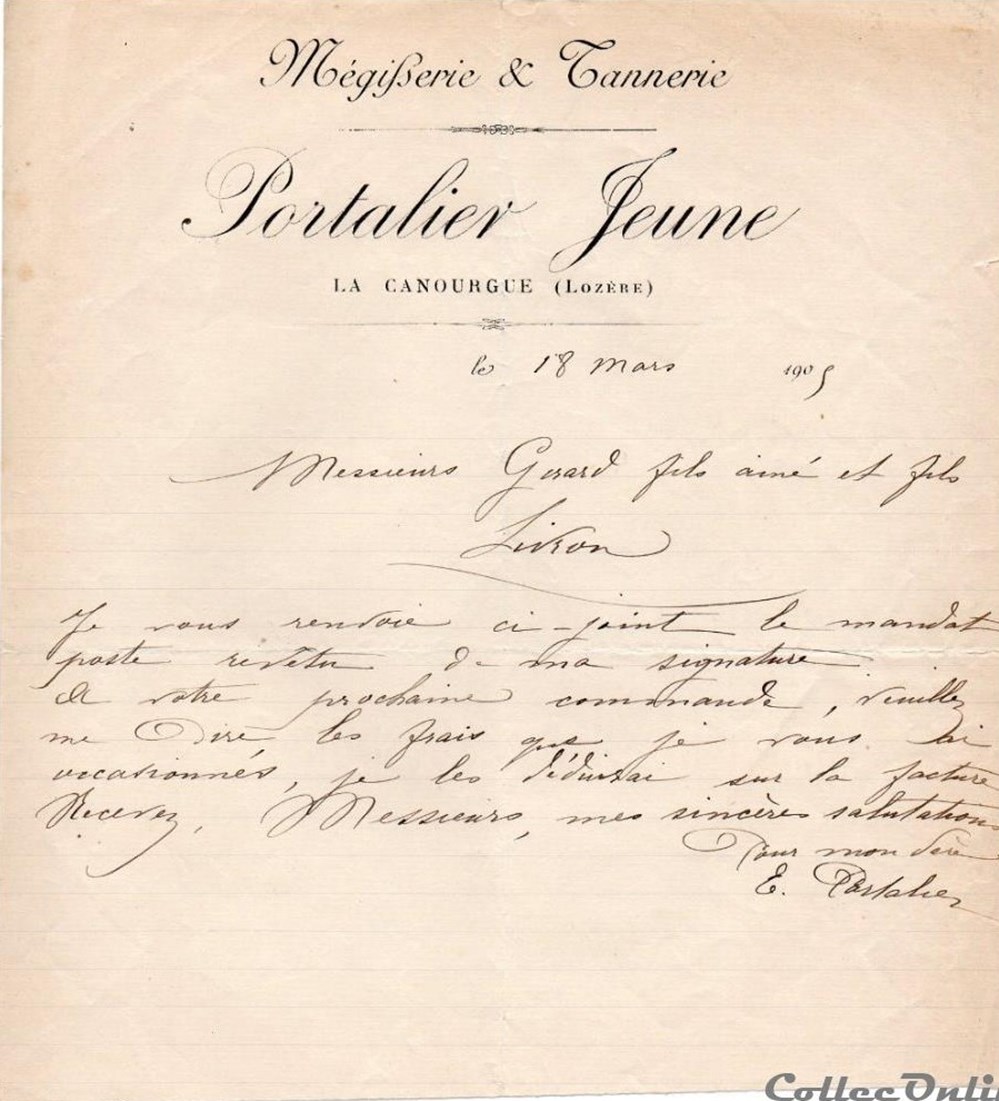 Mégisserie & Tannerie
Portalier Jeune
LA CANOURGUE (LOZÈRE)
le 18 mars 1905
Messieurs Gérard fils ainé et fils
Livron
Je vous renvoie ci-joint le mandat
poste revêtu de ma signature
A votre prochaine commande, veuillez
me dire, les frais que je vous ai
occasionnés, je les déduirai sur la facture
Recevez, Messieurs, mes sincères salutations
Pour mon père
E. Portalier
CollecOnli